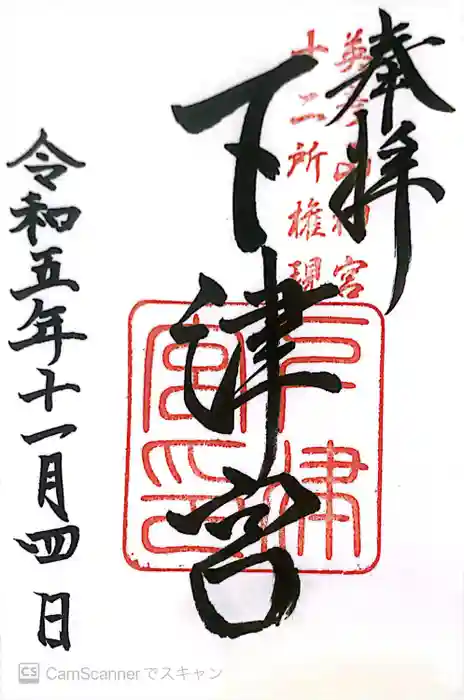 奉拝
英彦山神宮
十二所権現
下津宮
下津
宮印
令和五年十一月四日
CS CamScannerでスキャン